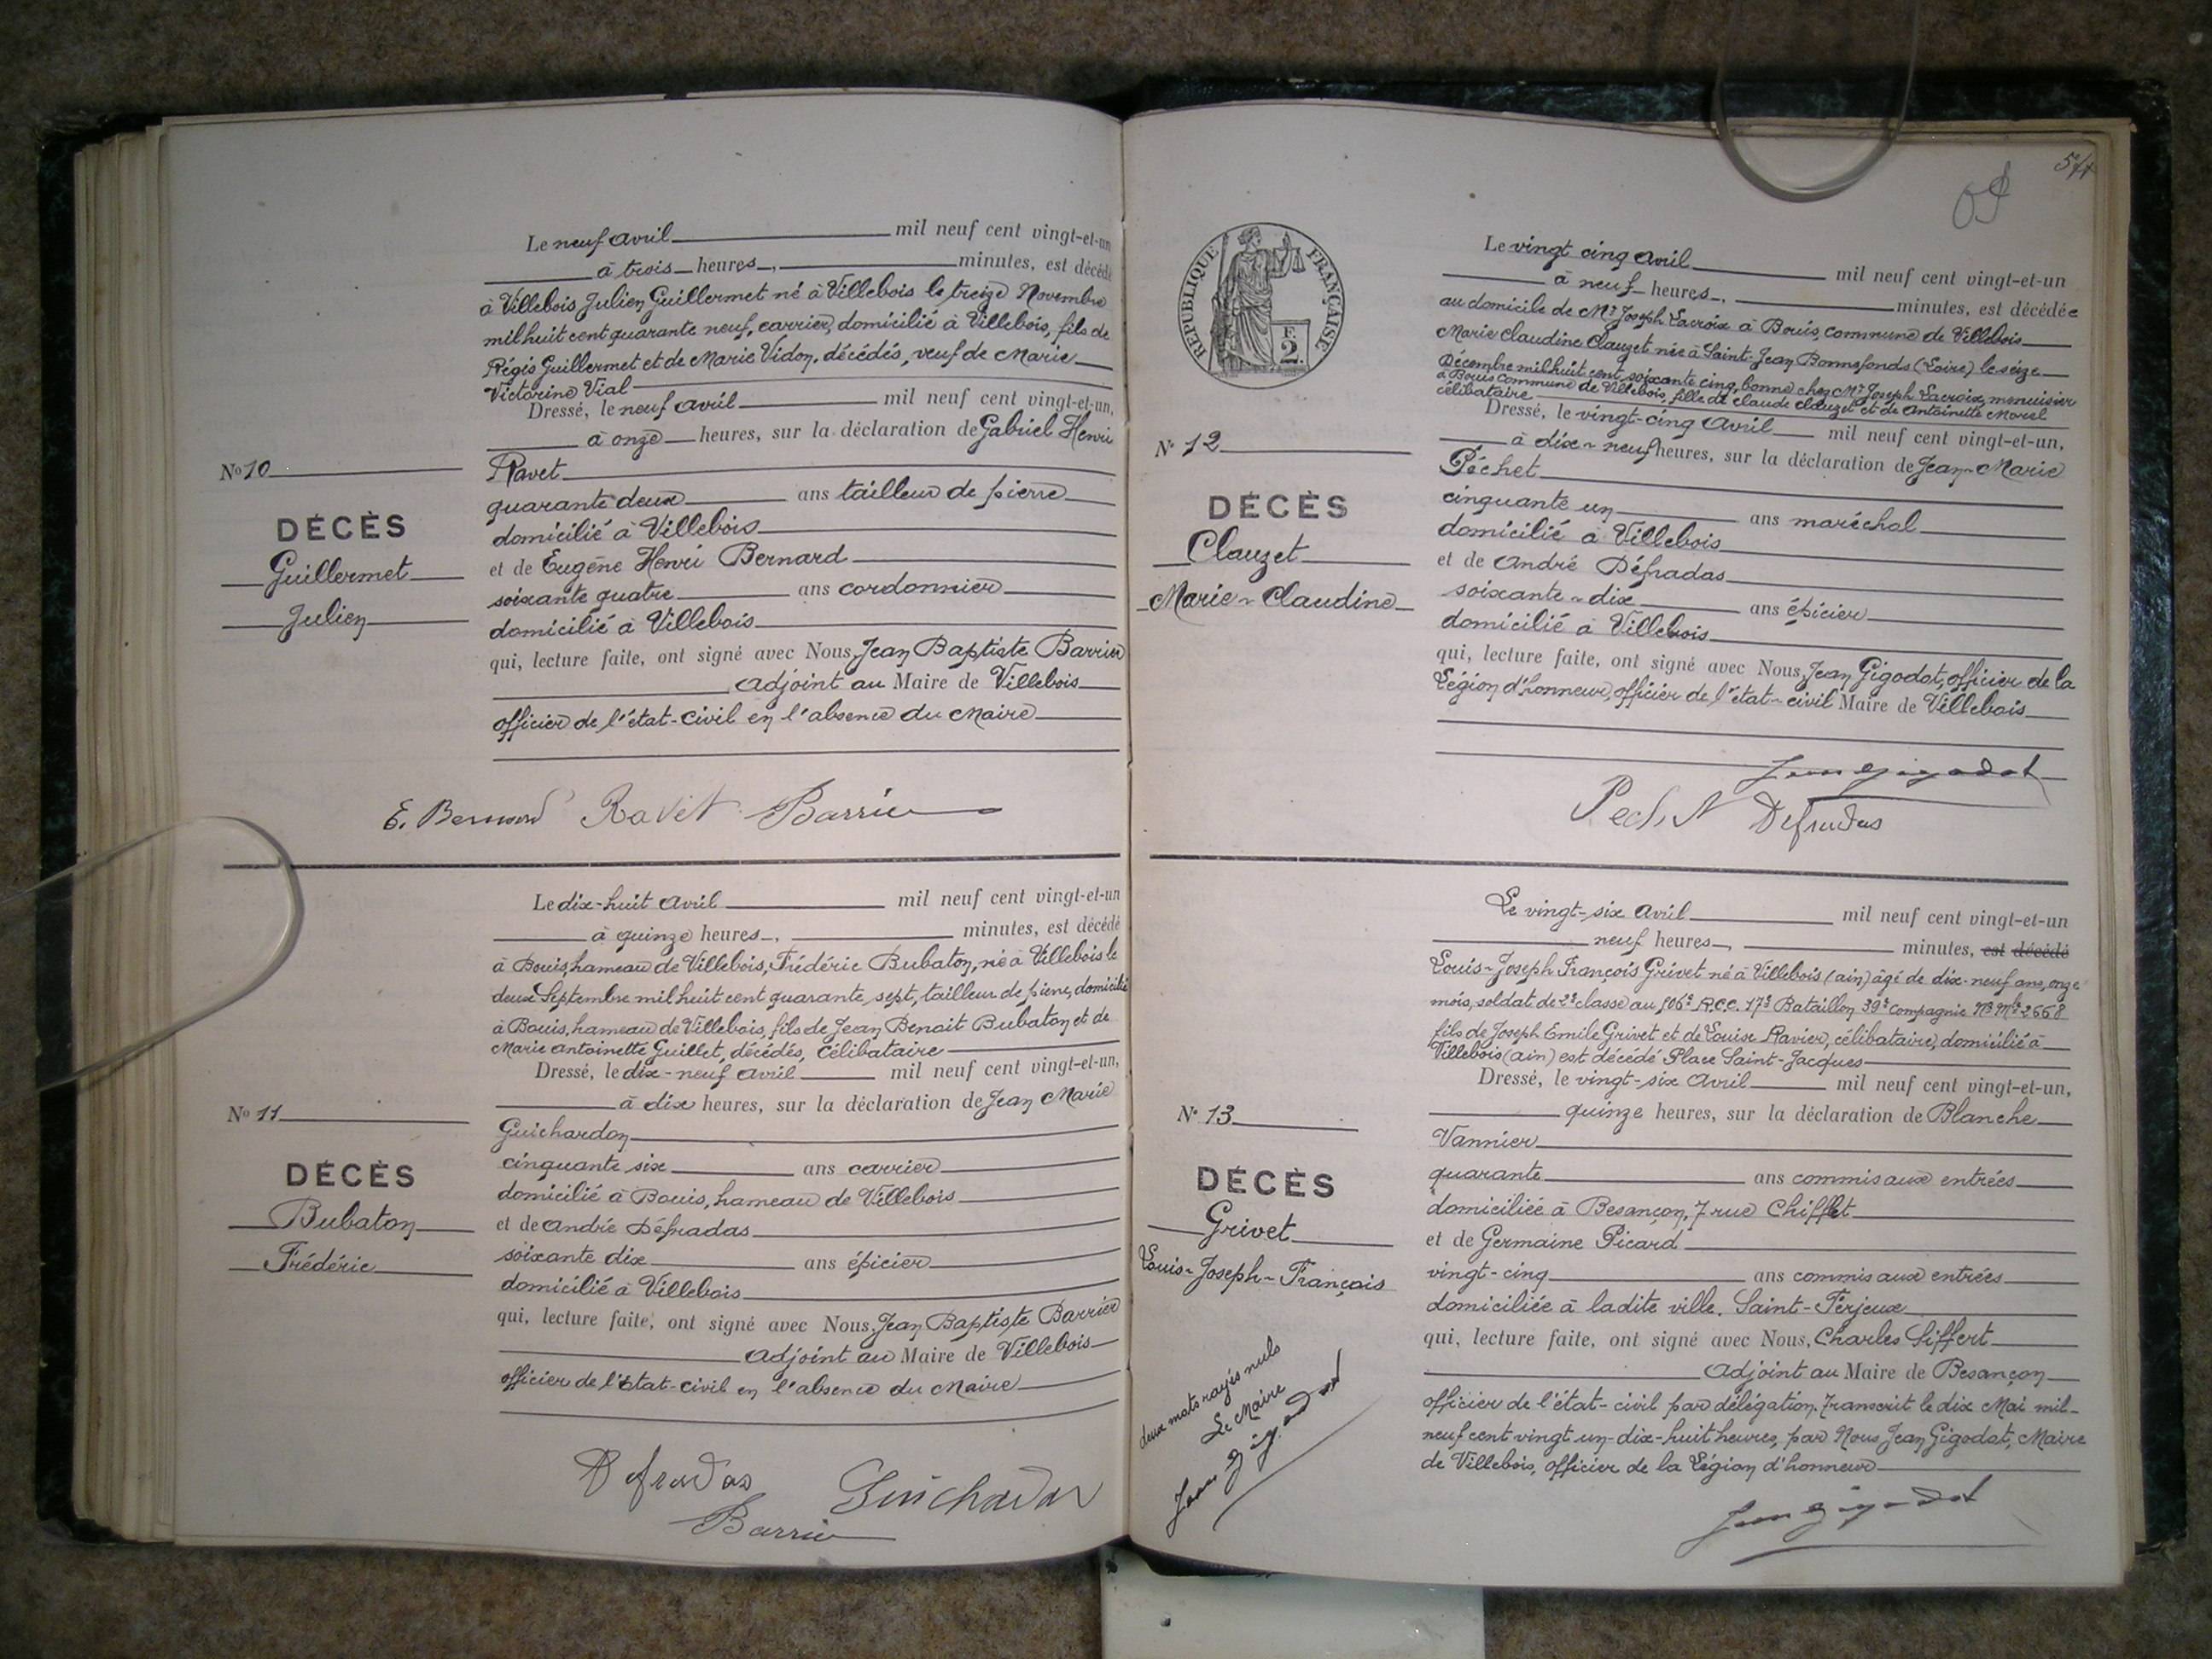 Le neuf Avril mil neuf cent vingt-et-un
à trois heures, minutes, est décédé
à Villebois Julien Guillermet né à Villebois le treize Novembre
mil huit cent quarante neuf, carrier, domicilié à Villebois, fils de
Régis Guillermet et de Marie Vidon, décédés, veuf de Marie
Victorine Vial
Dressé, le neuf Avril mil neuf cent vingt-et-un,
à onze heures, sur la déclaration de Gabriel Henri
No 10
Ravet
quarante deux ans tailleur de pierre
DÉCÈS
domicilié à Villebois
Guillermet
et de Eugène Henri Bernard
Julien
soixante quatre ans cordonnier
domicilié à Villebois
qui, lecture faite, ont signé avec Nous, Jean Baptiste Barrier
Adjoint au Maire de Villebois
officier de l'état-civil en l'absence du Maire
E. Bernard Ravet Barrier
Le dix-huit Avril mil neuf cent vingt-et-un
à quinze heures, minutes, est décédé
à Bouis, hameau de Villebois, Frédéric Bubaton, né à Villebois le
deux Septembre mil huit cent quarante sept, tailleur de pierre, domicilié
à Bouis, hameau de Villebois, fils de Jean Benoit Bubaton et de
Marie Antoinette Guillet, décédés, célibataire
Dressé, le dix-neuf Avril mil neuf cent vingt-et-un,
à dix heures, sur la déclaration de Jean Marie
No 11
Guichardon
cinquante six ans carrier
DÉCÈS
domicilié à Bouis, hameau de Villebois
Bubaton
et de André Défradas
Frédéric
soixante dix ans épicier
domicilié à Villebois
qui, lecture faite, ont signé avec Nous, Jean Baptiste Barrier
Adjoint au Maire de Villebois
officier de l'état-civil en l'absence du Maire
Defradas Guichardon
Barrier
54
RÉPUBLIQUE FRANÇAISE
F.
2.
Le vingt cinq Avril mil neuf cent vingt-et-un
à neuf heures, minutes, est décédée
au domicile de Mr Joseph Lacroix à Bouis, commune de Villebois
Marie Claudine Clauzet née à Saint-Jean Bonnefonds (Loire) le seize
Décembre mil huit cent soixante cinq, bonne chez Mr Joseph Lacroix, menuisier
à Bouis commune de Villebois, fille de Claude Clauzet et de Antoinette Morel
célibataire
Dressé, le vingt-cinq Avril mil neuf cent vingt-et-un,
No 12
à dix-neuf heures, sur la déclaration de Jean-Marie
Péchet
cinquante un ans maréchal
DÉCÈS
domicilié à Villebois
Clauzet
et de André Défradas
Marie-Claudine
soixante-dix ans épicier
domicilié à Villebois
qui, lecture faite, ont signé avec Nous, Jean Gigodot, officier de la
Légion d'honneur, officier de l'état-civil Maire de Villebois
Jean Gigodot
Pechet Defradas
Le vingt-six Avril mil neuf cent vingt-et-un
neuf heures, minutes, est décédé
Louis-Joseph François Grivet né à Villebois (ain) âgé de dix-neuf ans, onze
mois, soldat de 2e classe au 506e R.C.C. 17e Bataillon 39e Compagnie No Mle 2668
fils de Joseph Emile Grivet et de Louise Ravier, célibataire, domicilié à
Villebois (ain) est décédé Place Saint-Jacques
Dressé, le vingt-six Avril mil neuf cent vingt-et-un,
No 13
quinze heures, sur la déclaration de Blanche
Vannier
quarante ans commis aux entrées
DÉCÈS
domiciliée à Besançon, 7 rue Chifflet
Grivet
et de Germaine Picard
Louis-Joseph-François
vingt-cinq ans commis aux entrées
domiciliée à ladite ville, Saint-Ferjeux
qui, lecture faite, ont signé avec Nous, Charles Siffert
Adjoint au Maire de Besançon
officier de l'état-civil par délégation. Transcrit le dix Mai mil-
neuf cent vingt un-dix-huit heures, par Nous Jean Gigodot, Maire
de Villebois, officier de la Légion d'honneur
deux mots rayés nuls
Le Maire
Jean Gigodot
Jean Gigodot